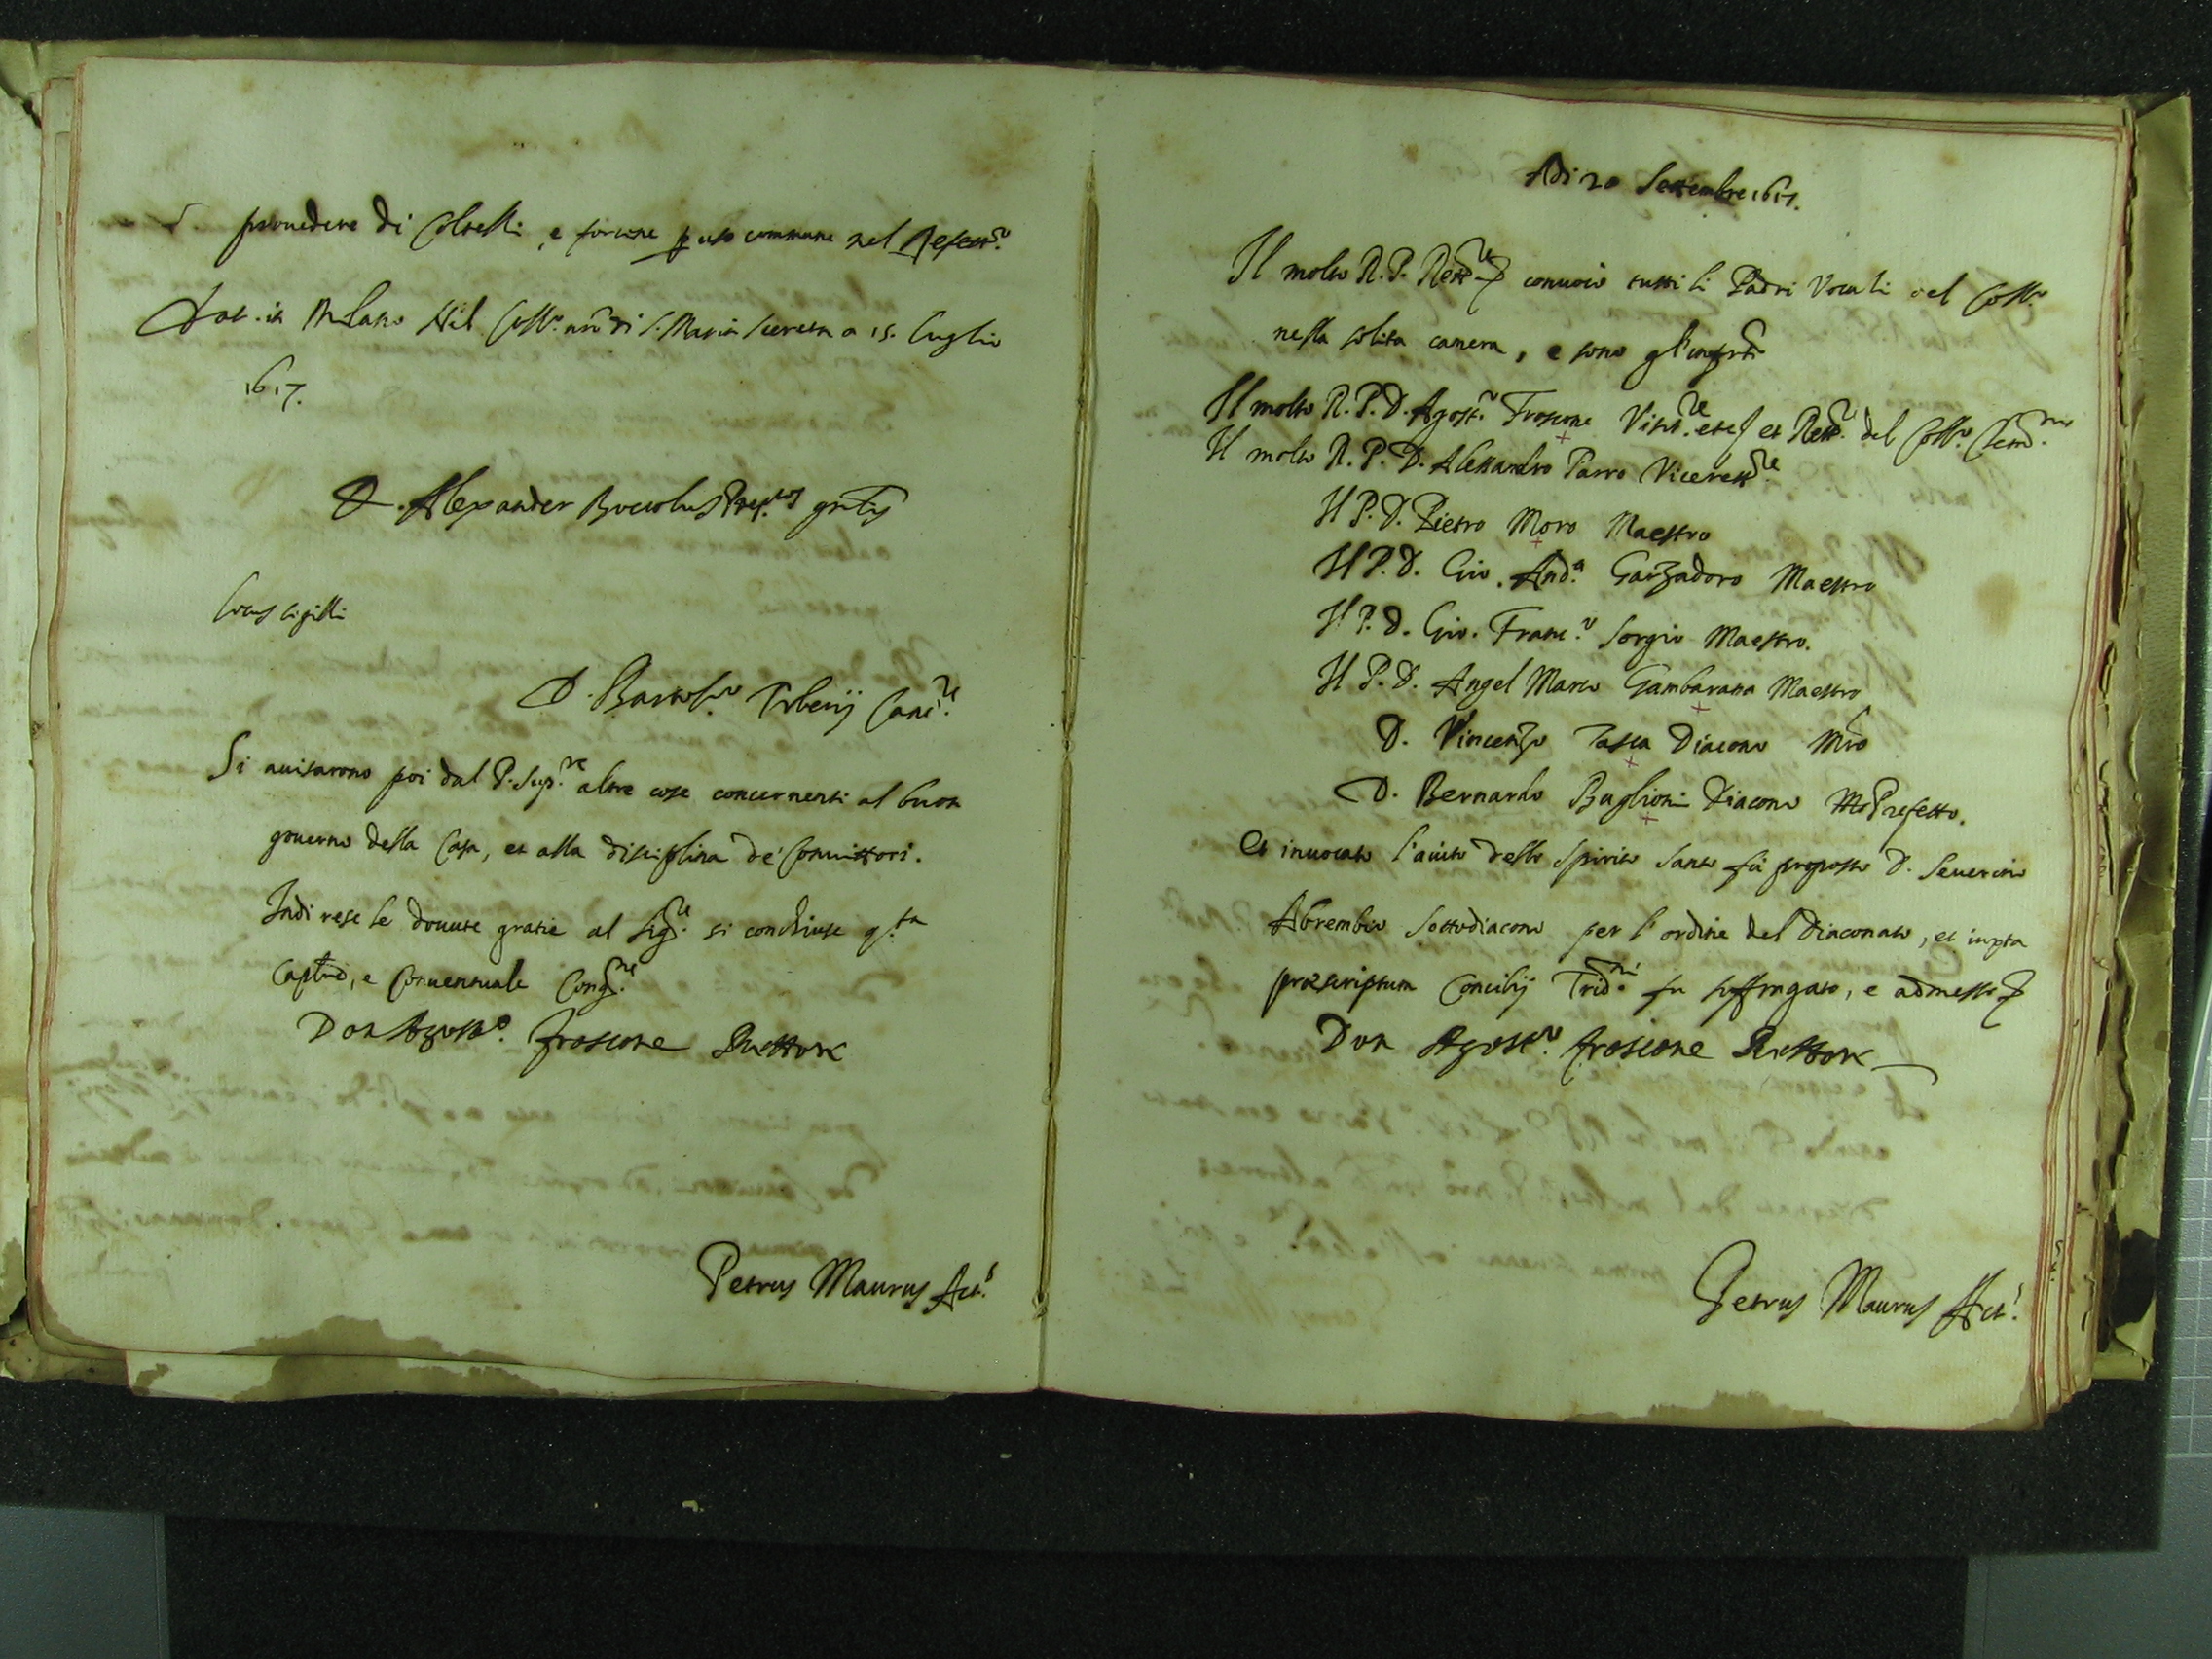 prouedere di Coltelli, e forcine p uso commune nel Refett.º
Dat. in Milano Nel Coll.º nrõ di S. Maria Secreta a 15. Luglio
1617.
D. Alexander Boccolus Prep.tus gñlis
Locus sigilli
D. Bartol.º Canc.re
Si auisarono poi dal P. Sup.re altre cose concernenti al buon
gouerno della Casa, et alla disciplina de' Conuittori.
Indi rese le douute gratie al Sig.re si conchiuse q.ta
Cap.re, e Conuentuale Cong.ne
Don Agost.º Froscone Rettore
Petrus Maurus Act.s
Adi 20 Settembre 1617.
Il molto R. P. Rett.re conuocò tutti li Padri Vocali del Coll.º
nella solita camera, e sono gl'infrti
Il molto R. P. D. Agost.º Froscone Visit.re et Rett.re del Coll.º Clem.no
Il molto R. P. D. Alessandro Parro Vicerett.re
Il P. D. Pietro Moro Maestro
Il P. D. Gio. And.a Garzadoro Maestro
Il P. D. Gio. Franc.º Sorgio Maestro.
Il P. D. Angel Marco Gambarana Maestro
D. Vincenzo Tasca Diacono Mrõ
D. Bernardo Baglioni Diacono Prefetto.
Et inuocato l'aiuto dello Spirito Santo fù proposto D. Seuerino
Abrembio Sottodiacono per l'ordine del Diaconato, et iuxta
præscriptum Concilij Trid.ni fu suffragato, e admesso
Don Agost.º Froscone Rettore
Petrus Maurus Act.s